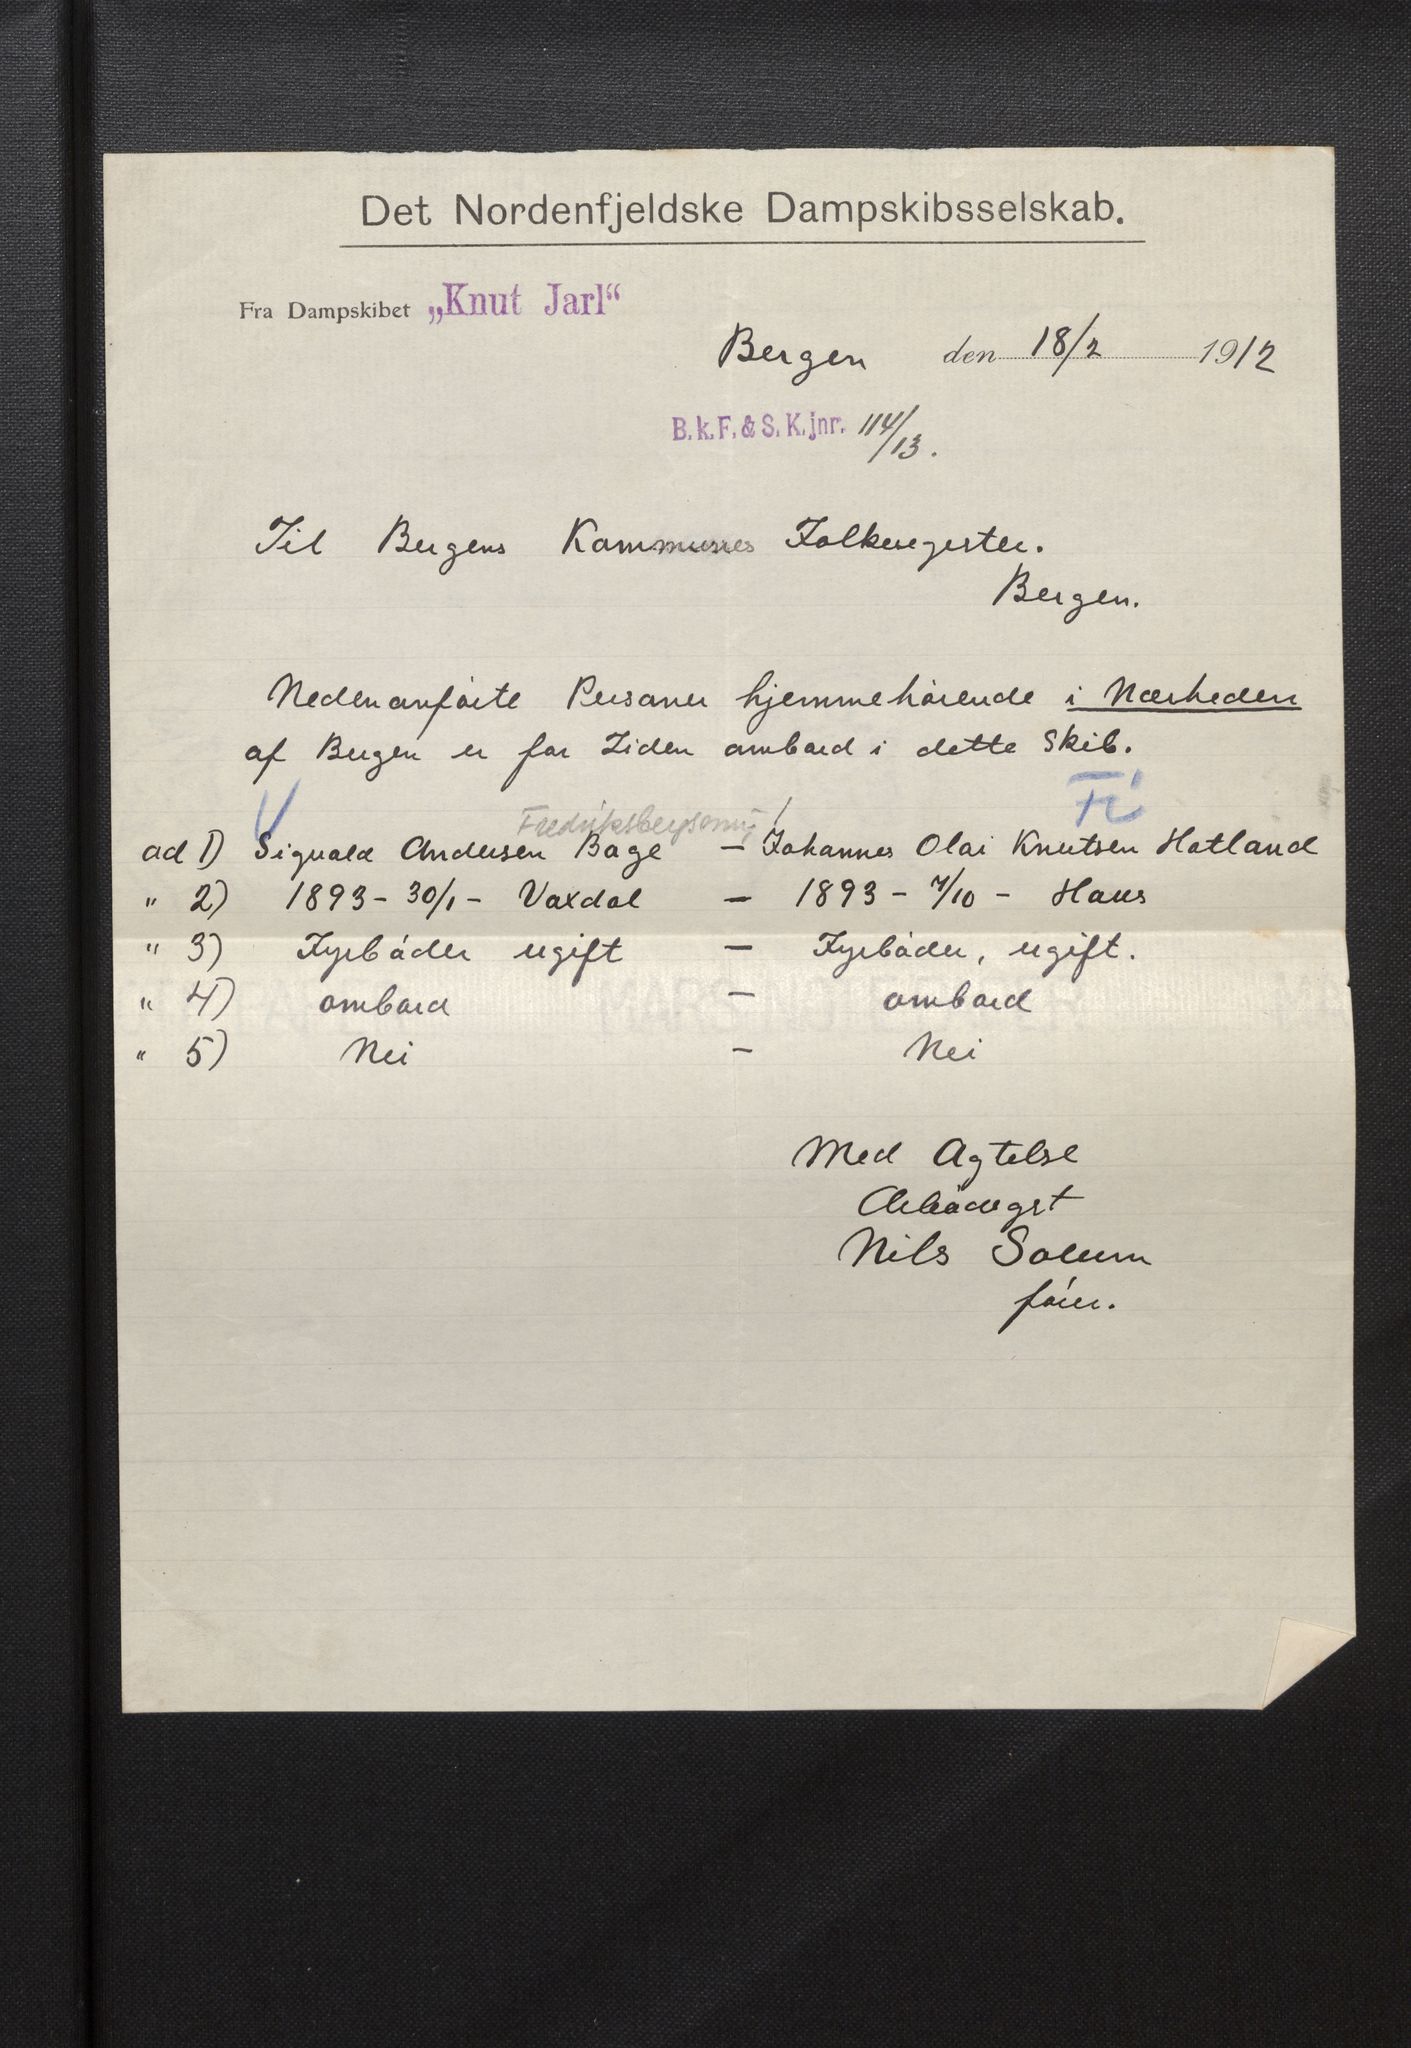 Det Nordenfjeldske Dampskibsselskab.
Fra Dampskibet „Knut Jarl“
Bergen den 18/2 1912
B. k. F. & S. K. jnr. 114/13.
Til Bergens Kommunes Folkeregister.
Bergen.
Nedenanførte Personer hjemmehørende i Nærheden
af Bergen er for Tiden ombord i dette Skib.
Fr
ad 1) Sigvald Andersen Boge – Johannes Olai Knutsen Hatland
" 2) 1893 - 30/1 - Vaxdal – 1893 - 7/10 - Haus
" 3) Fyrbøder ugift – Fyrbøder, ugift.
" 4) ombord – ombord
" 5) Nei – Nei
Med Agtelse
Ærbødigst
Nils Solum
fører.